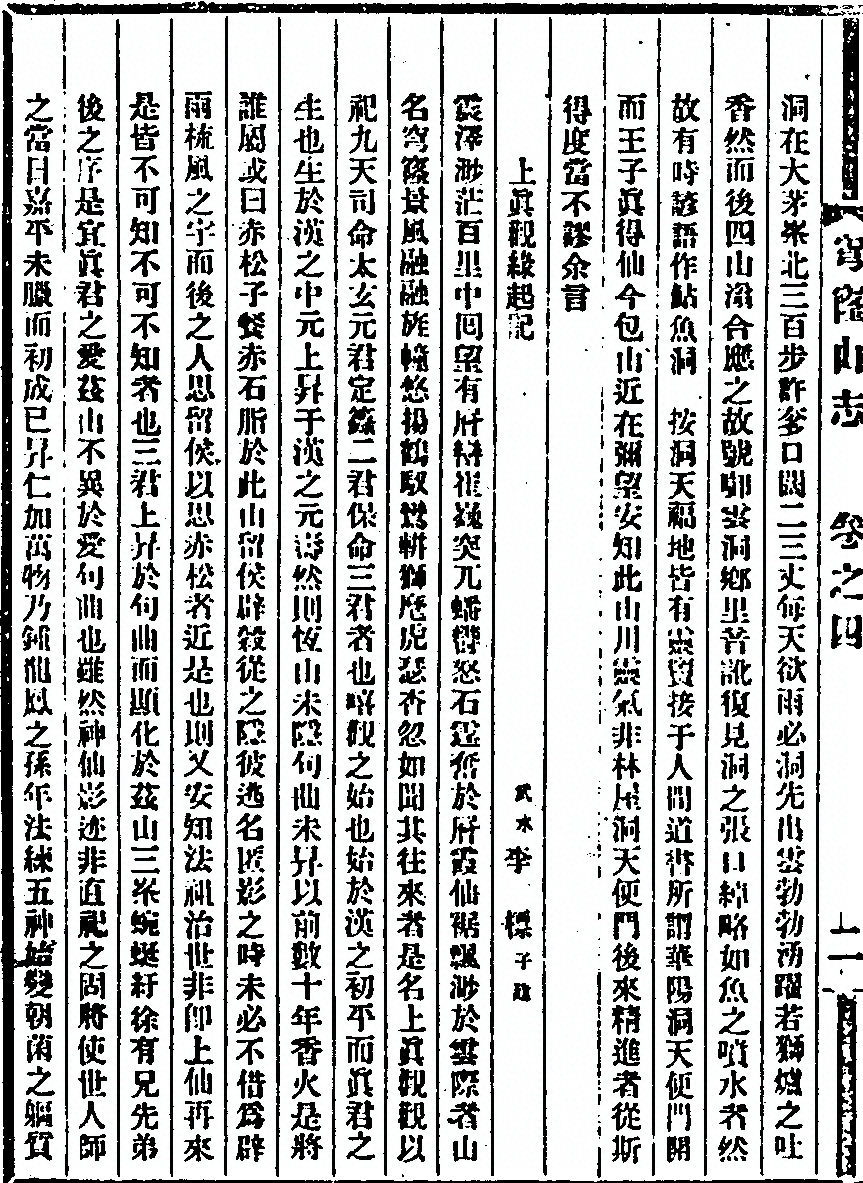 穹窿山志 卷之四
洞在大茅峯北三百步許奓口闊二三丈每天欲雨必洞先出雲勃勃湧躍若獅爐之吐
香然而後四山滃合應之故號啣雲洞鄉里音訛復見洞之張口綽略如魚之噴水者然
故有時諺語作鮎魚洞 按洞天福地皆有靈寶接于人間道書所謂華陽洞天便門開
而王子眞得仙今包山近在彌望安知此山川靈氣非林屋洞天便門後來精進者從斯
得度當不謬余言
上眞觀緣起記 武水李標子建
震澤渺茫百里中回望有屏障崔巍突兀蟠欝怒石靈奮於屏霞仙裾飄渺於雲際者山
名穹窿景風融融旌幢悠揚鶴馭鸞輧獅麈虎瑟杳忽如聞其往來者是名上眞觀觀以
祀九天司命太玄元君定籙二君保命三君者也嘻觀之始也始於漢之初平而眞君之
生也生於漢之中元上昇于漢之元壽然則恆山未隱句曲未昇以前數十年香火是將
誰屬或曰赤松子餐赤石脂於此山留侯辟穀從之隱彼逃名匿影之時未必不借爲辟
雨梳風之宇而後之人思留侯以思赤松者近是也則又安知法祖治世非卽上仙再來
是皆不可知不可不知者也三君上昇於句曲而顯化於茲山三峯蜿蜒紆徐有兄先弟
後之序是宜眞君之愛茲山不異於愛句曲也雖然神仙影迹非直祀之固將使世人師
之當日嘉平未臘而初成已昇仁加萬物乃鍾龍鳳之孫年法練五神始變朝菌之軀質